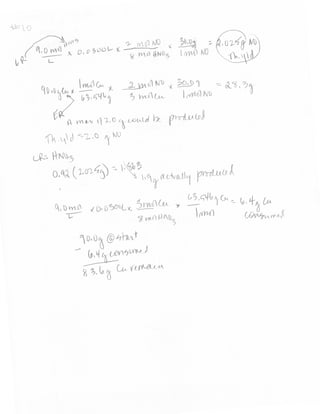 LR 9.0 mol HNO3 / L × 0.0300L × 2 mol NO / 8 mol HNO3 × 30.0g / 1 mol NO = 2.025g NO Th. yld
90.0g Cu × 1 mol Cu / 63.546g × 2 mol NO / 3 mol Cu × 30.0g / 1 mol NO = 28.3g
ER
A max of 2.0 g would be produced
Th. yld = 2.0 g NO
LR = HNO3
0.92 (2.025g) = 1.863
1.9g actually produced
9.0 mol / L × 0.030L × 3 mol Cu / 8 mol HNO3 × 63.546g Cu / 1 mol = 6.4g Cu consumed
90.0g @ start
- 6.4g consumed
83.6g Cu remain